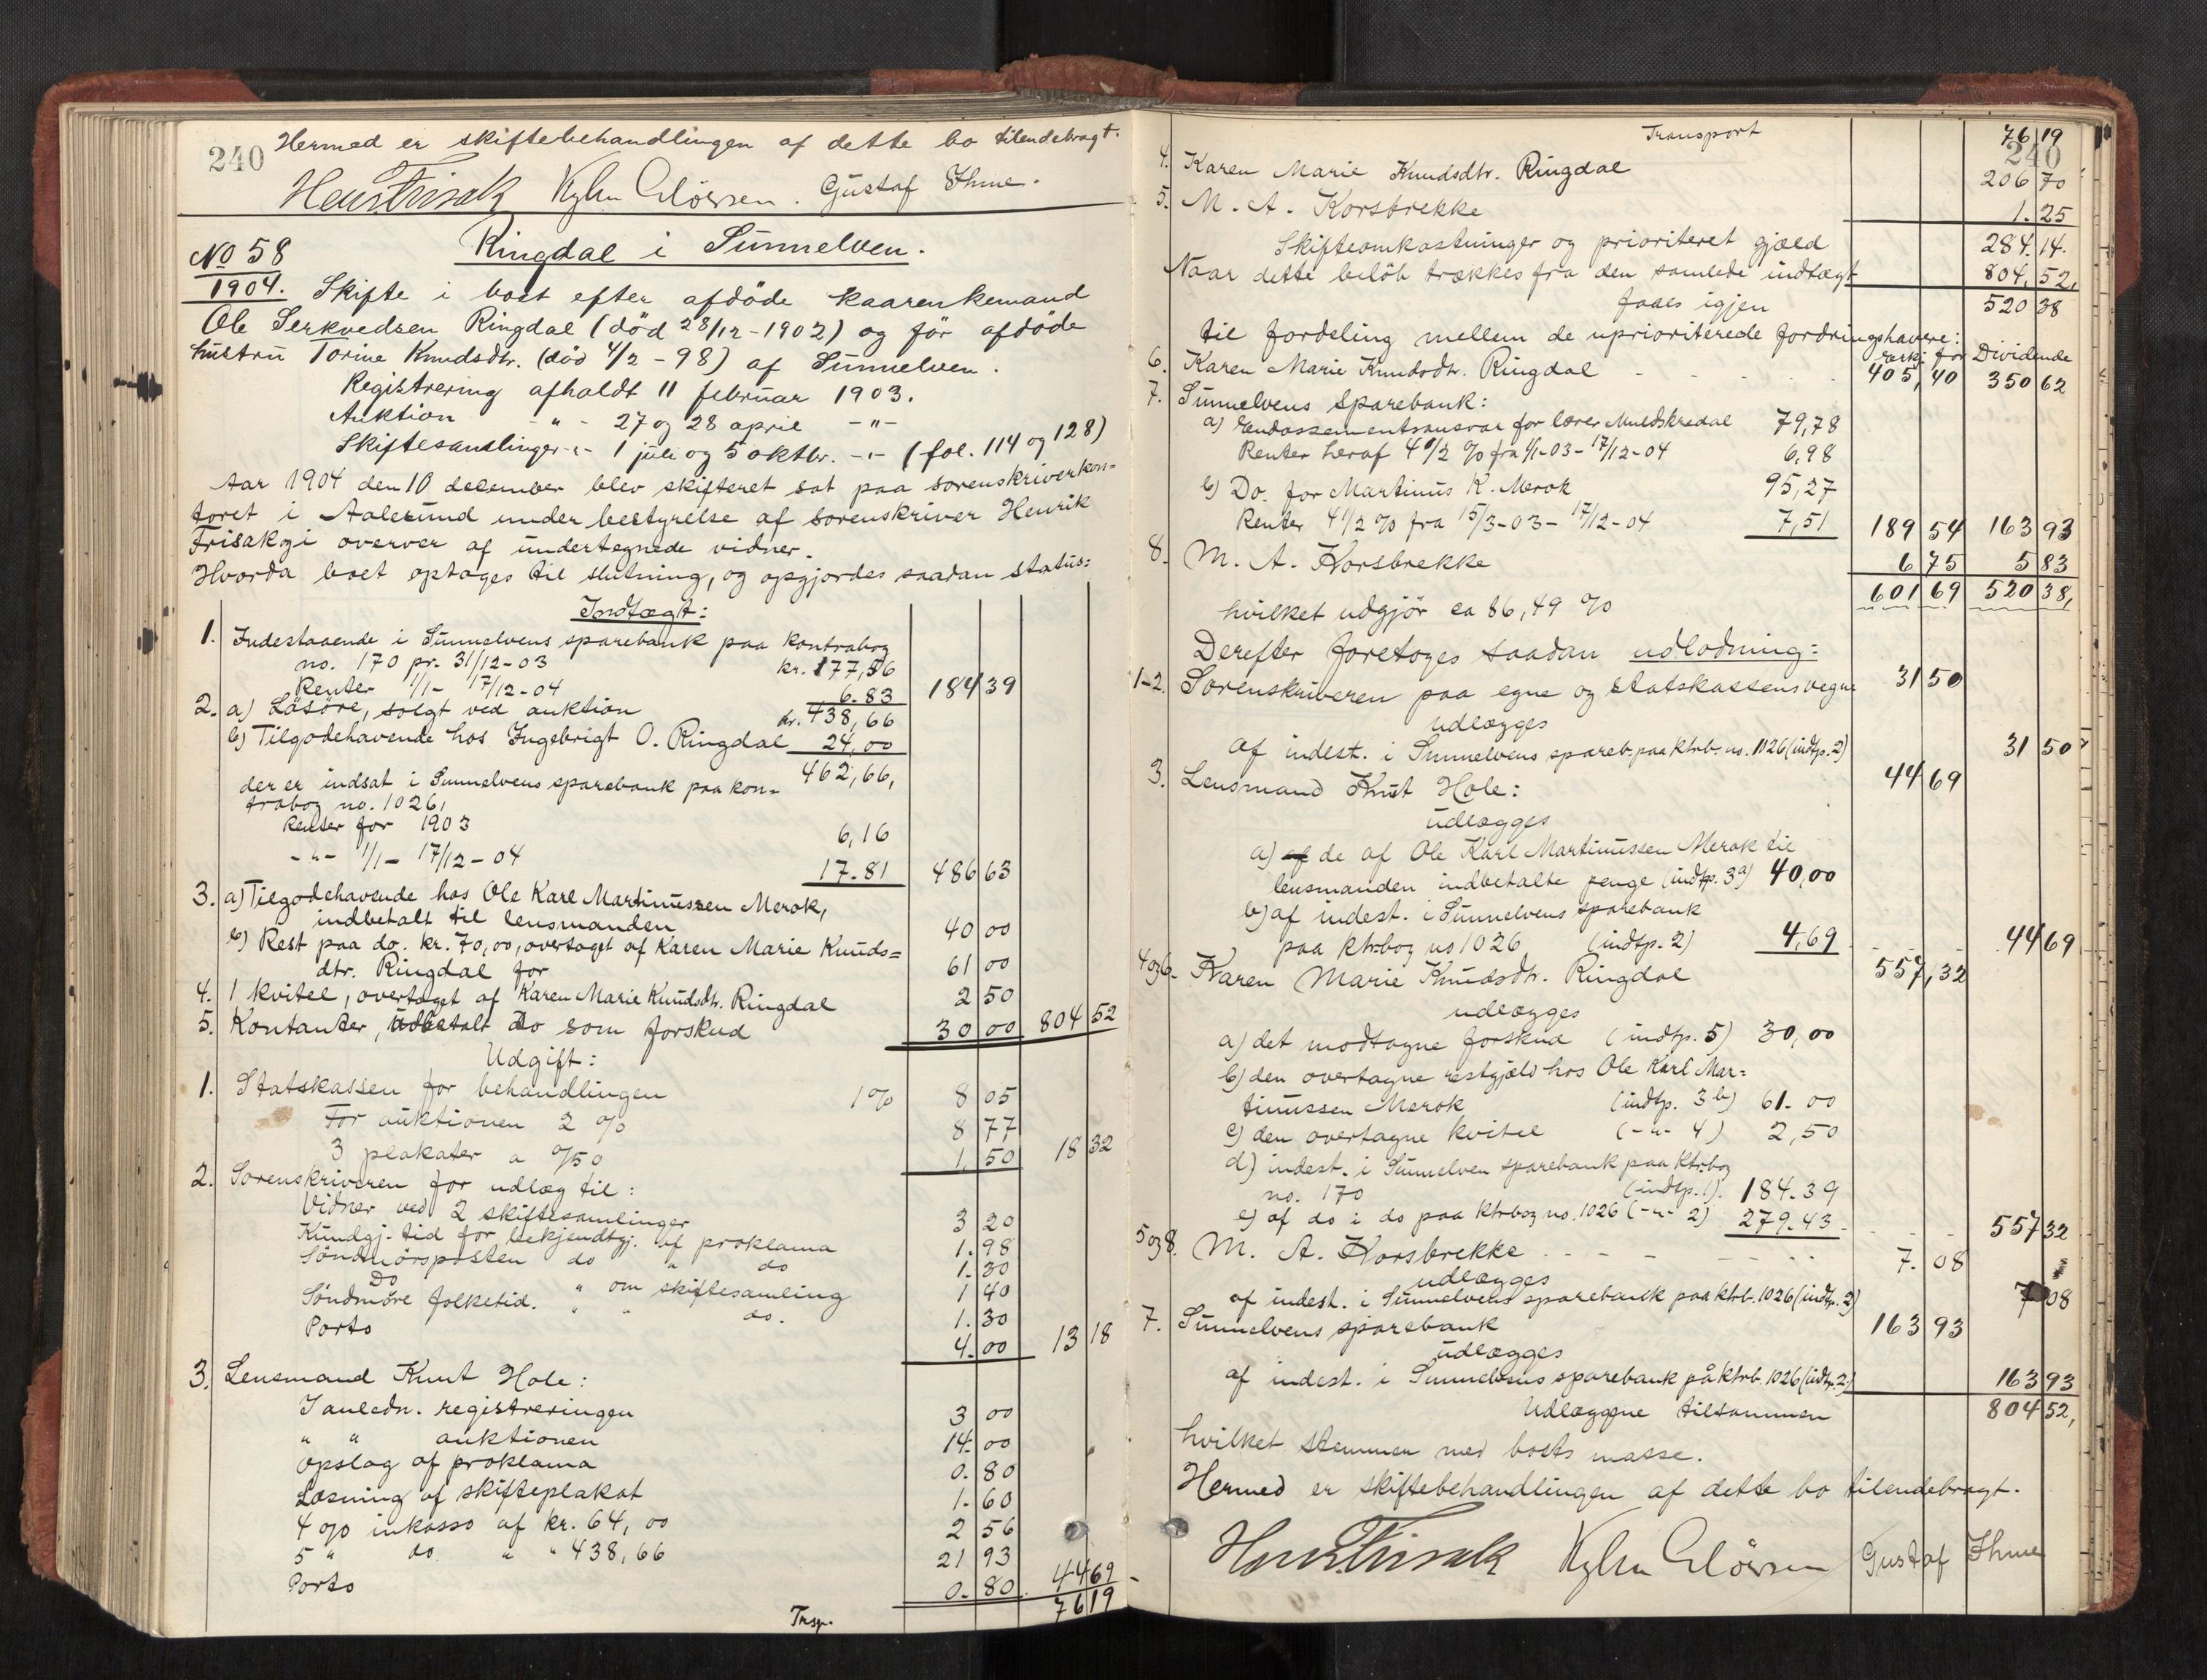 240
Hermed er skiftebehandlingen af dette bo tilendebragt.
Gustaf Ihme.
No 58
1904.
Ringdal i Sunnelven.
Skifte i boet efter afdöde kaarenkemand
Ole Serkvedsen Ringdal (död 28/12-1902) og för afdöde
hustru Torine Knudsdtr. (död 4/2-98) af Sunnelven.
Registrering afholdt 11 februar 1903.
Auktion -"- 27 og 28 april -"-
Skiftesamlinger -"- 1 juli og 5 oktbr. -"- (fol. 114 og 128)
Aar 1904 den 10 december blev skifteret sat paa sorenskriverkon=
toret i Aalesund under bestyrelse af sorenskriver Henrik
Frisak og i overver af undertegnede vidner.
Hvorda boet optoges til slutning, og opgjordes saadan status:
Indtægt:
1. Indestaaende i Sunnelvens sparebank paa kontrabog
no. 170 pr. 31/12-03 kr. 177,56
Renter 1/1- 17/12-04 6.83 184 39
2. a) Lösöre, solgt ved auktion kr. 438,66
b) Tilgodehavende hos Ingebrigt O. Ringdal 24,00
462,66,
der er indsat i Sunnelvens sparebank paa kon=
trabog no. 1026,
Renter for 1903 6,16
-"- 1/1- 17/12-04 17.81 486 63
3. a) Tilgodehavende hos Ole Karl Martinussen Merok,
indbetalt til lensmanden 40 00
b) Rest paa do. kr. 70,00, overtaget af Karen Marie Knuds=
dtr. Ringdal for 61 00
4. 1 kvitel, overtaget af Karen Marie Knudsdtr. Ringdal 2 50
5. Kontanter, udbetalt do som forskud 30 00 804 52
Udgift:
1. Statskassen for behandlingen 1% 8 05
For auktionen 2 % 8 77
3 plakater a 0/50 1. 50 18 32
2. Sorenskriveren for udlæg til:
Vidner ved 2 skiftesamlinger 3 20
Kundgj. tid for bekjendtgj. af proklama 1. 98
Söndmörsposten do " do 1. 30
Do " om skiftesamling 1 40
Söndmöre folketid. " " do. 1. 30
Porto 4. 00 13 18
3. Lensmand Knut Hole:
I anledn. registreringen 3 00
" " auktionen 14. 00
Opslag af proklama 0. 80
Læsning af skifteplakat 1. 60
4 % inkasso af kr. 64,00 2 56
5 " do. " " 438,66 21 93
Porto 0. 80 44 69
Trsp. 76 19
240
Transport 76 19
4. Karen Marie Knudsdtr. Ringdal 206 70
5. M. A. Korsbrekke 1. 25
Skifteomkostninger og prioriteret gjæld 284. 14.
Naar dette belöb trækkes fra den samlede indtægt 804, 52,
faaes igjen 520 38
til fordeling mellem de uprioriterede fordringshavere:
Dividende
6. Karen Marie Knudsdtr. Ringdal 405,40 350 62
7. Sunnelvens sparebank:
a) Endossementsansvar for lærer Muldskredal 79,78
Renter heraf 4 1/2 % fra 1/1-03-17/12-04 6,98
b) Do. for Martinus K. Merok 95,27
Renter 4 1/2 % fra 15/3-03-17/12-04 7,51 189 54 163 93
8. M. A. Korsbrekke 6 75 5 83
601 69 520 38,
hvilket udgjör ca 86,49 %
Derefter foretoges saadan udlodning:
1-2. Sorenskriveren paa egne og statskassens vegne 31 50
udlægges
af indest. i Sunnelvens spareb. paa ktrb. no. 1026 (indtp. 2) 31 50
3. Lensmand Knut Hole: 44 69
udlægges
a) de af Ole Karl Martinussen Merok til
lensmanden indbetalte penge (indtp. 3a) 40,00
b) af indest. i Sunnelvens sparebank
paa ktrbog no 1026 (indtp. 2) 4,69 44 69
4 og 6. Karen Marie Knudsdtr. Ringdal 557,32
udlægges
a) det modtagne forskud (indtp. 5) 30,00
b) den overtagne restgjæld hos Ole Karl Mar=
tinussen Merok (indtp. 3b) 61.00
c) den overtagne kvitel (-"- 4) 2,50
d) indest. i Sunnelven sparebank paa ktrbog
no. 170 (indtp. 1). 184.39
e) af do i do paa ktrbog no. 1026 (-"- 2) 279.43 557 32
5 og 8. M. A. Korsbrekke 7. 08
udlægges
af indest. i Sunnelvens sparebank paa ktrb. 1026 (indtp. 2) 7 08
7. Sunnelvens sparebank 163 93
udlægges
af indest. i Sunnelvens sparebank på ktrb. 1026 (indtp. 2) 163 93
Udlæggene tilsammen 804 52,
hvilket stemmer med boets masse.
Hermed er skiftebehandlingen af dette bo tilendebragt.
Gustaf Ihme